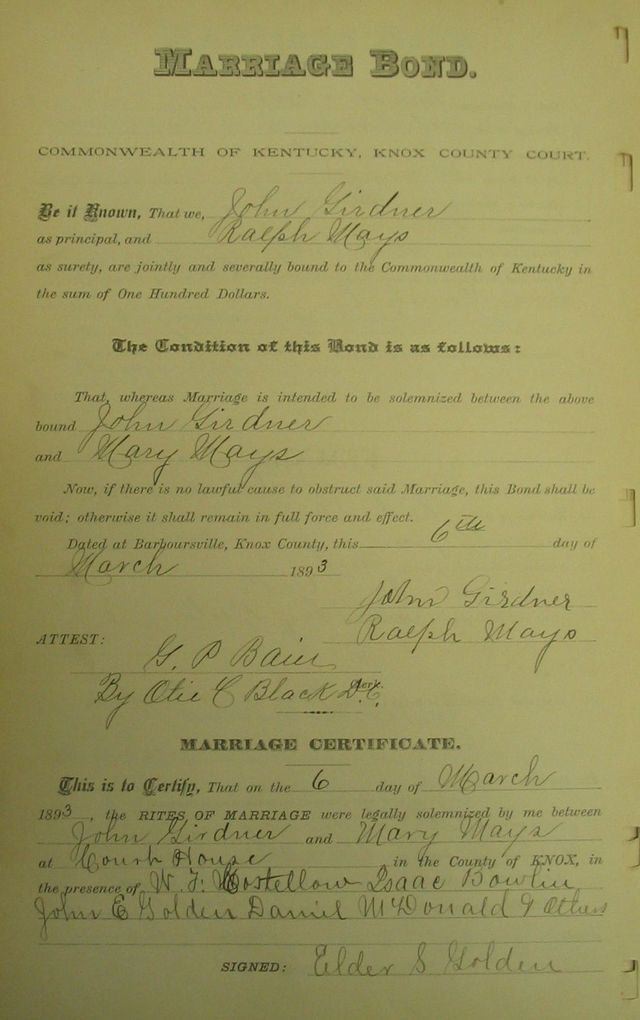 MARRIAGE BOND.
COMMONWEALTH OF KENTUCKY, KNOX COUNTY COURT.
Be it Known, That we, John Girdner
as principal, and Ralph Mays
as surety, are jointly and severally bound to the Commonwealth of Kentucky in
the sum of One Hundred Dollars.
The Condition of this Bond is as follows:
That, whereas Marriage is intended to be solemnized between the above
bound John Girdner
and Mary Mays
Now, if there is no lawful cause to obstruct said Marriage, this Bond shall be
void; otherwise it shall remain in full force and effect.
Dated at Barboursville, Knox County, this 6th day of
March 1893
John Girdner
Ralph Mays
ATTEST:
G. P Bain
Clerk.
By Otie C Black D.C.
MARRIAGE CERTIFICATE.
This is to Certify, That on the 6 day of March
1893, the RITES OF MARRIAGE were legally solemnized by me between
John Girdner and Mary Mays
at Court House in the County of KNOX, in
the presence of W. F. Costellow Isaac Bowlin
John E Golden Daniel McDonald & Others
SIGNED: Elder S Golden